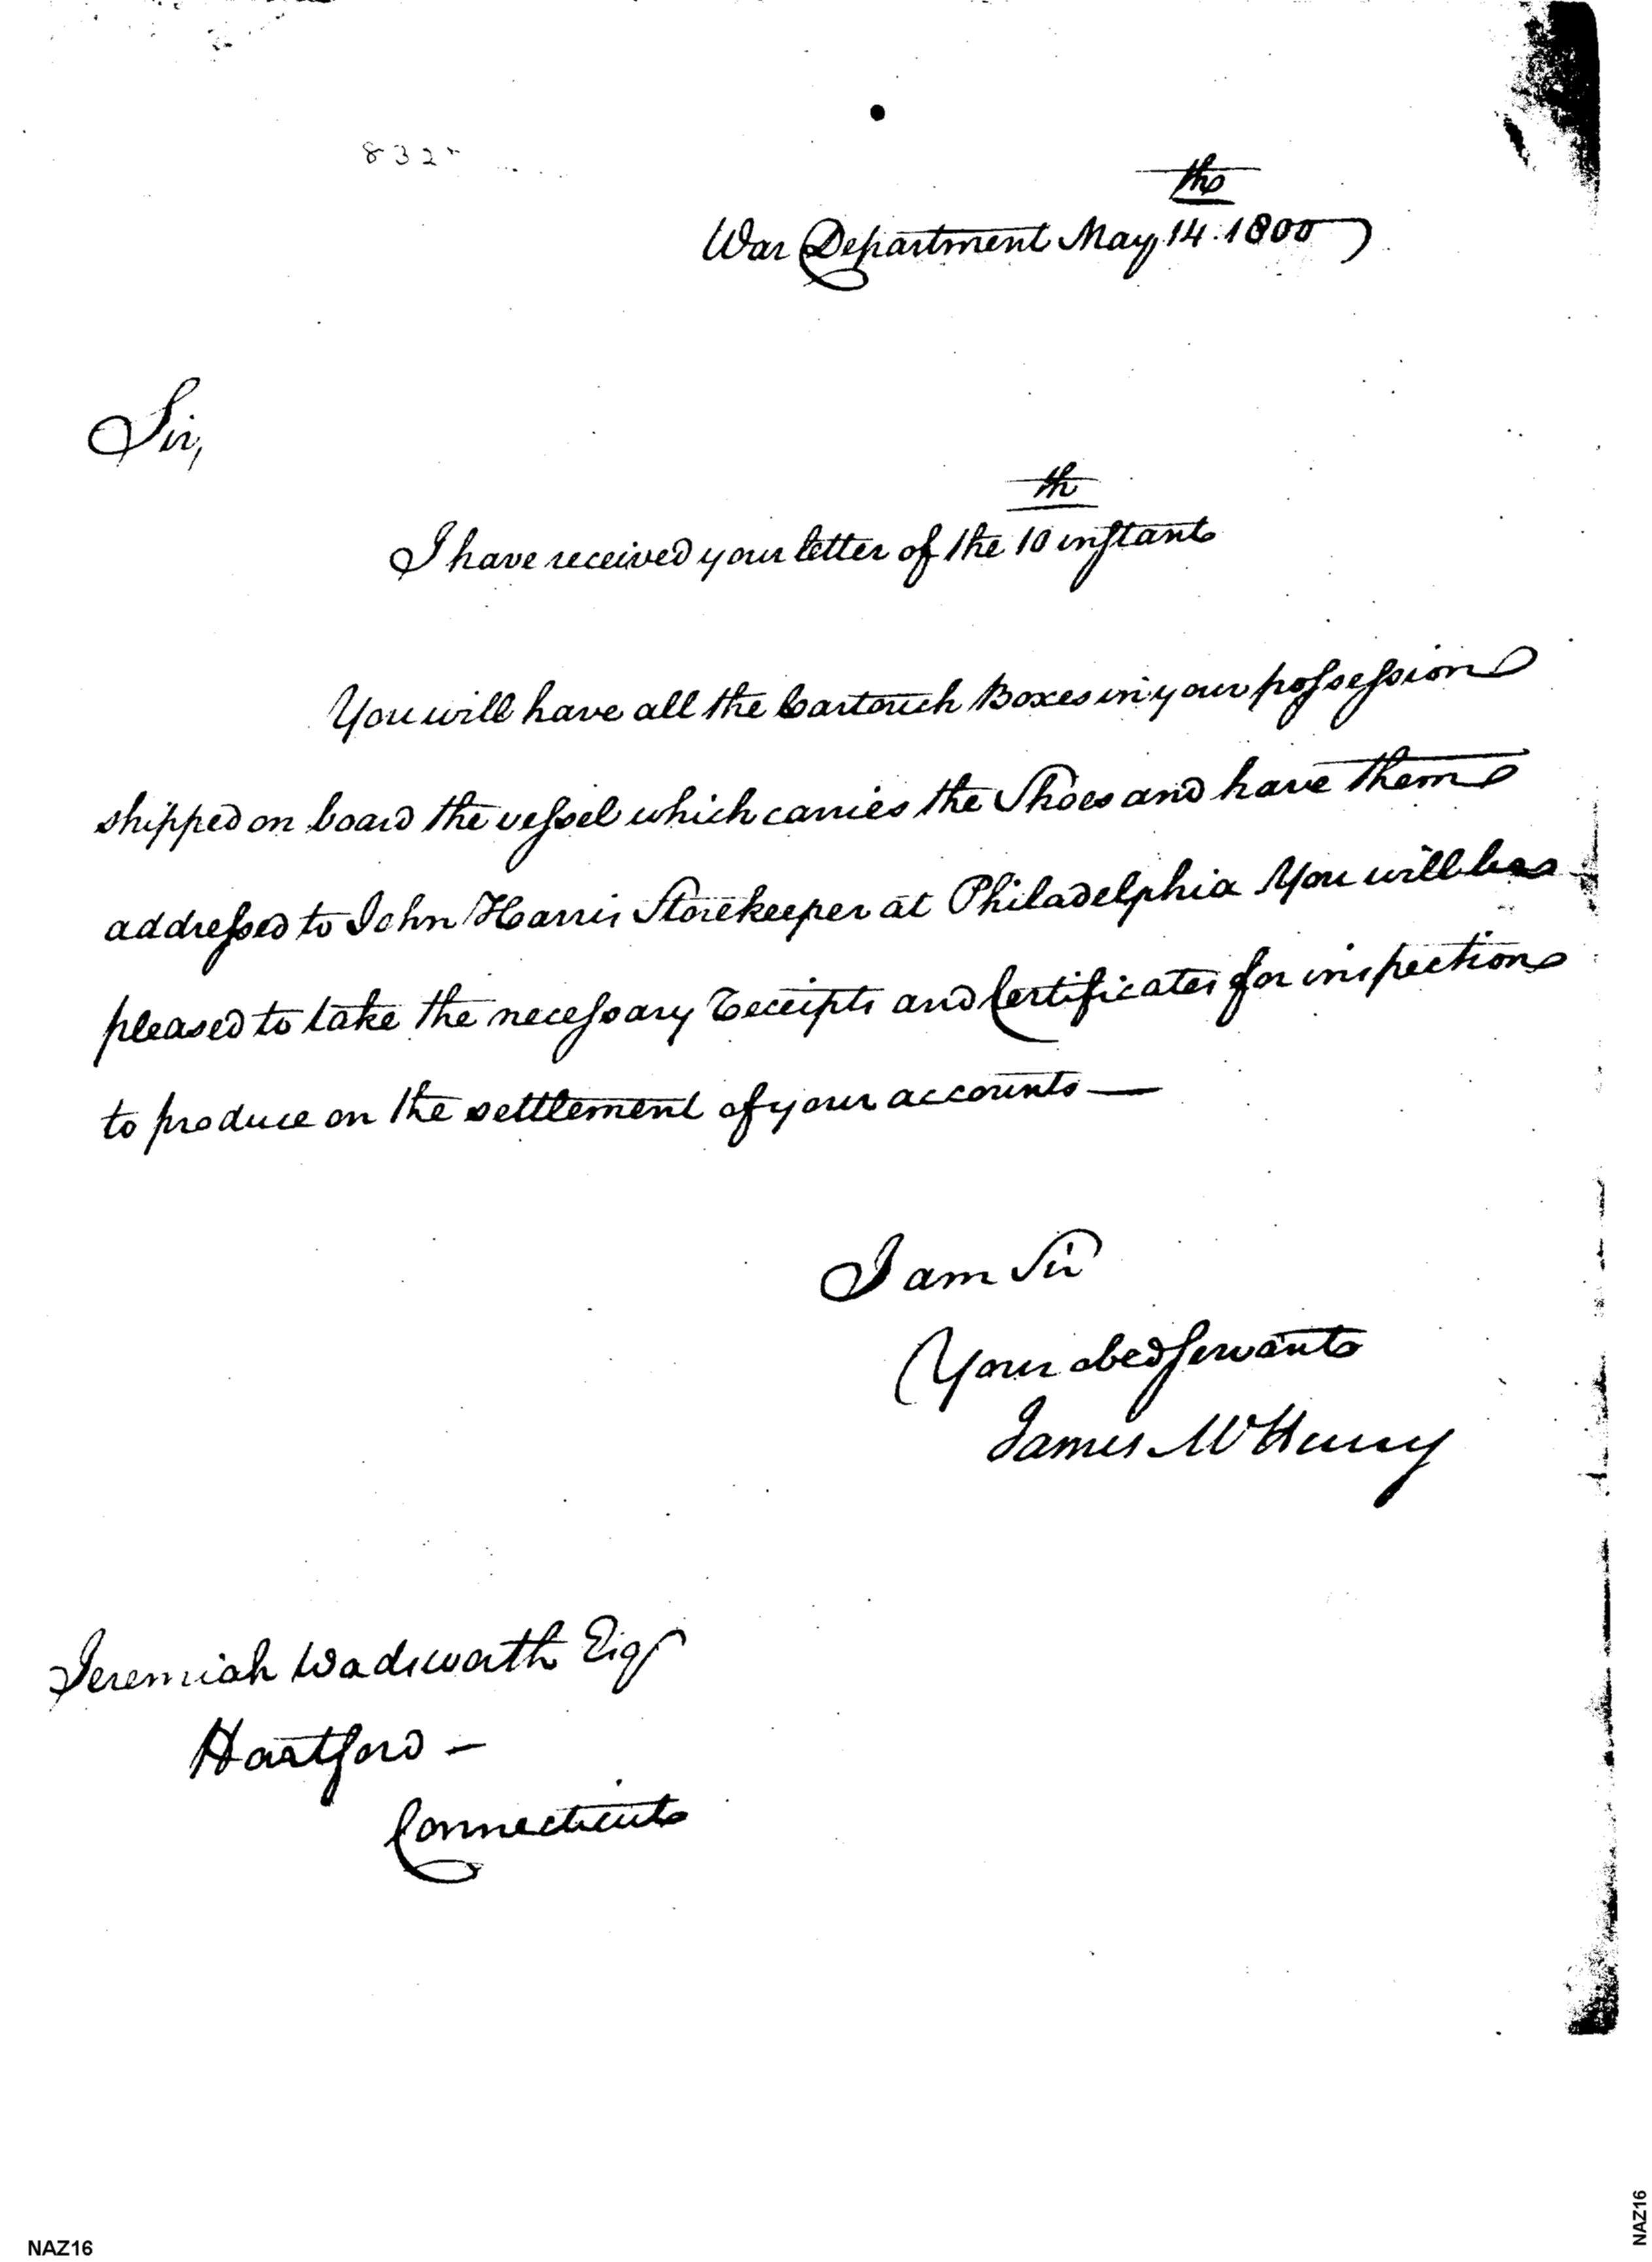 832
War Department May 14th 1800
Sir,
I have received your letter of the 10th instant
You will have all the Cartouch Boxes in your possession
shipped on board the vessel which carries the Shoes and have them
addressed to John Harris Storekeeper at Philadelphia You will be
pleased to take the necessary Receipts and Certificates for inspection
to produce on the settlement of your accounts —
I am Sir
Your obed Servant
James McHenry
Jeremiah Wadsworth Esqr
Hartford —
Connecticut
NAZ16
NAZ16